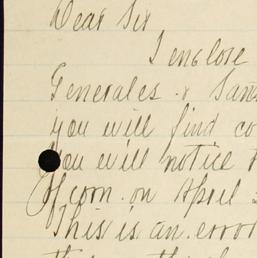 Dear Sir
I enclose
Generales & Sam
you will find co
You will notice t
of corn on April
This is an error